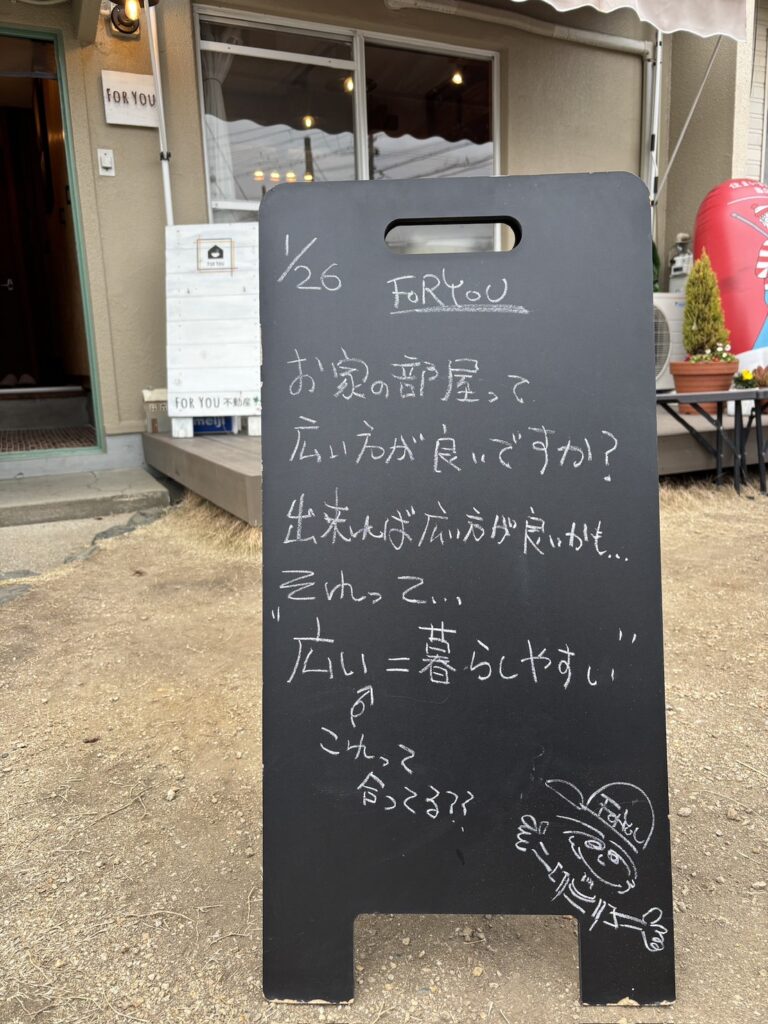 FOR YOU
FOR YOU
FOR YOU 不動産
meiji
1/26
FOR YOU
お家の部屋って
広い方が良いですか?
出来れば広い方が良いかも...
それって...
"広い=暮らしやすい"
これって
合ってる??
FOR YOU